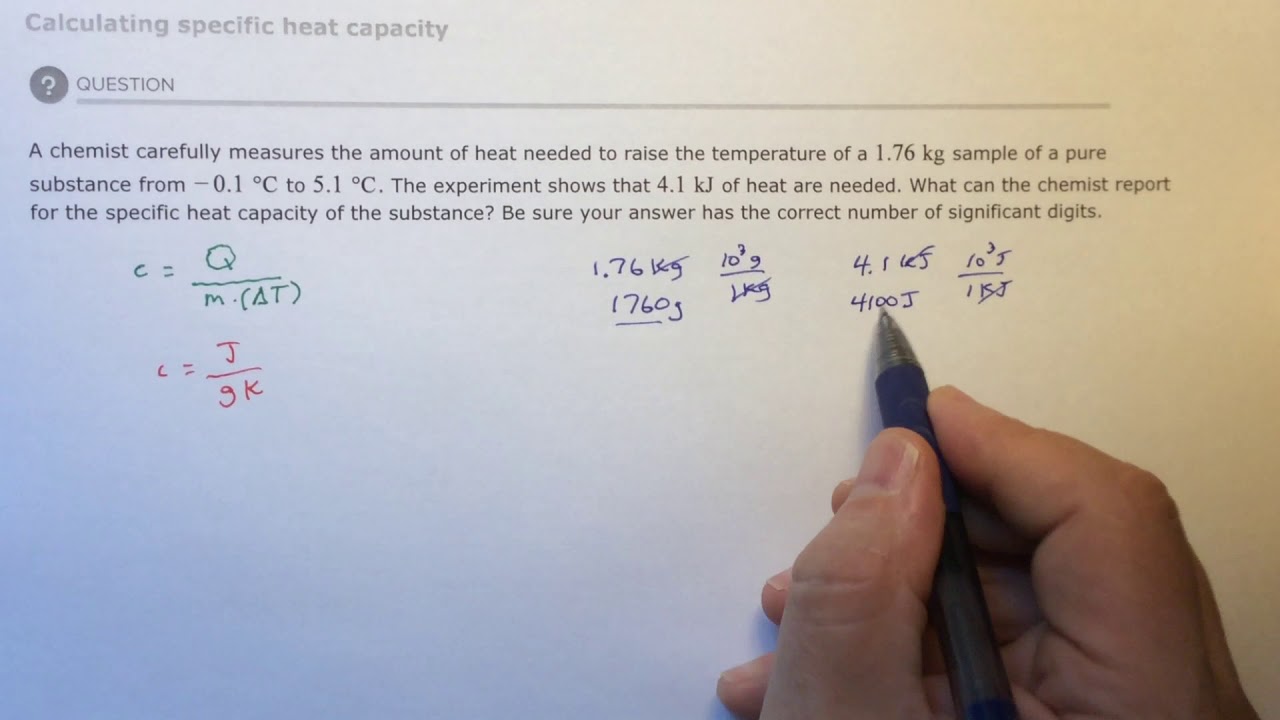 Calculating specific heat capacity
? QUESTION
A chemist carefully measures the amount of heat needed to raise the temperature of a 1.76 kg sample of a pure
substance from −0.1 °C to 5.1 °C. The experiment shows that 4.1 kJ of heat are needed. What can the chemist report
for the specific heat capacity of the substance? Be sure your answer has the correct number of significant digits.
c = Q / m·(ΔT)
1.76 kg 10³g / 1kg
1760g
4.1 kJ 10³J / 1kJ
4100J
c = J / gK